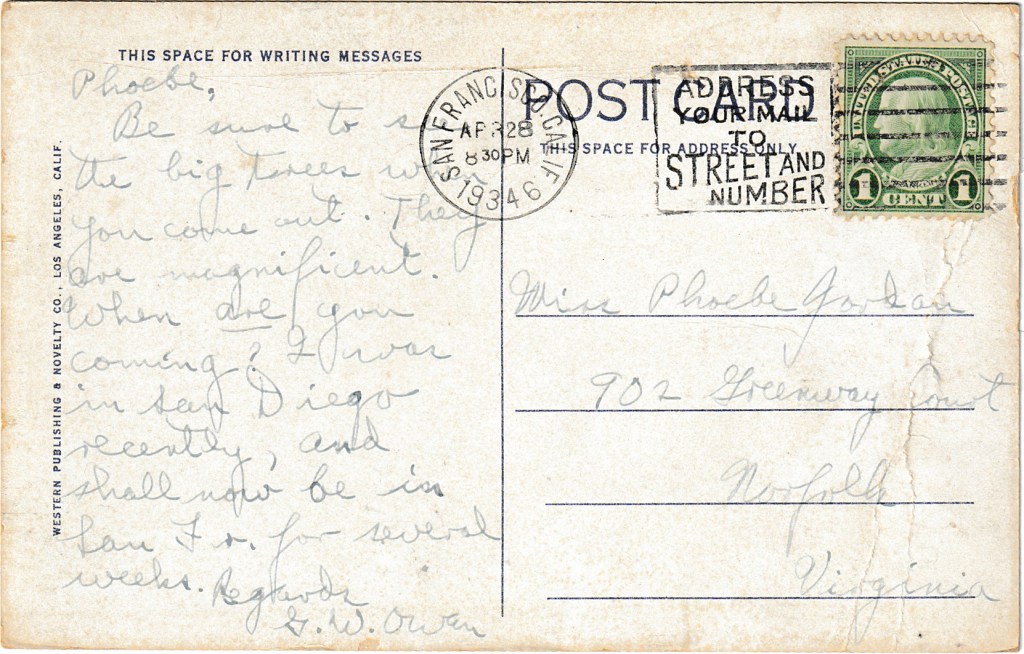 THIS SPACE FOR WRITING MESSAGES
Phoebe,
Be sure to s
the big trees when
you come out. They
are magnificent.
When are you
coming? I was
in San Diego
recently, and
shall now be in
San Fr. for several
weeks. Regards
G. W. Owen
WESTERN PUBLISHING & NOVELTY CO., LOS ANGELES, CALIF.
POST CARD
THIS SPACE FOR ADDRESS ONLY
SAN FRANCISCO, CALIF.
APR 28
8 30 PM
1934 6
ADDRESS
YOUR MAIL
TO
STREET AND
NUMBER
1 CENT 1
Miss Phoebe
902 Greenway Court
Norfolk
Virginia